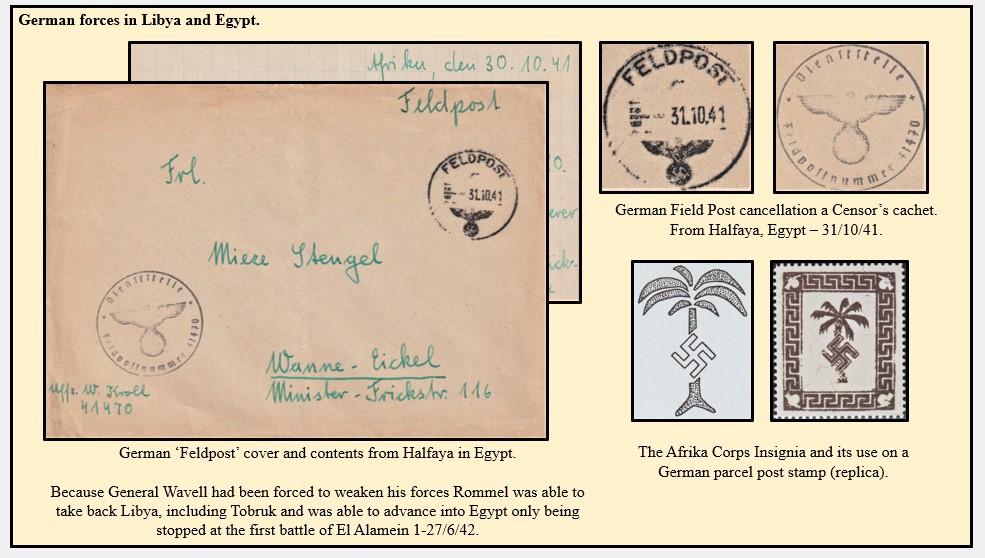 German forces in Libya and Egypt.
Afrika, den 30.10.41
Feldpost
Frl.
FELDPOST
31.10.41
Mieze Stengel
Dienststelle
Feldpostnummer 41470
Wanne-Eickel
Minister-Frickstr. 116
Uffz. W. Kroll
41470
German ‘Feldpost’ cover and contents from Halfaya in Egypt.
Because General Wavell had been forced to weaken his forces Rommel was able to
take back Libya, including Tobruk and was able to advance into Egypt only being
stopped at the first battle of El Alamein 1-27/6/42.
FELDPOST
31.10.41
Dienststelle
Feldpostnummer 41470
German Field Post cancellation a Censor’s cachet.
From Halfaya, Egypt – 31/10/41.
The Afrika Corps Insignia and its use on a
German parcel post stamp (replica).